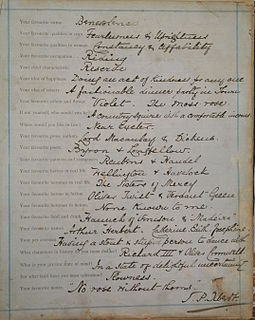 Your favourite virtue. Benevolence
Your favourite qualities in man. Fearlessness & Uprightness
Your favourite qualities in woman. Constancy & Affability
Your favourite occupation. Riding
Your chief characteristic. Reserve
Your idea of happiness. Doing an act of Kindness for any one
Your idea of misery. A fashionable dinner party in Town
Your favourite colour and flower. Violet. The Moss rose
If not yourself, who would you be? A Country Squire with a comfortable income
Where would you like to live? Near Exeter
Your favourite prose authors. Lord Macaulay & Dickens
Your favourite poets. Byron & Longfellow
Your favourite painters and composers. Reubens & Handel
Your favourite heroes in real life. Wellington & Havelock
Your favourite heroines in real life. The Sisters of Mercy
Your favourite heroes in fiction. Oliver Twist & Verdant Green
Your favourite heroines in fiction. None Known to me
Your favourite food and drink. Haunch of Venison & Madeira
Your favourite names. Arthur Herbert. Catherine Edith Josephine
Your pet aversion. Having a stout & stupid person to dance with
Richard III & Oliver Cromwell
What is your present state of mind? In a state of delightful uncertainty
Slowness
Your favourite motto. No rose without thorns